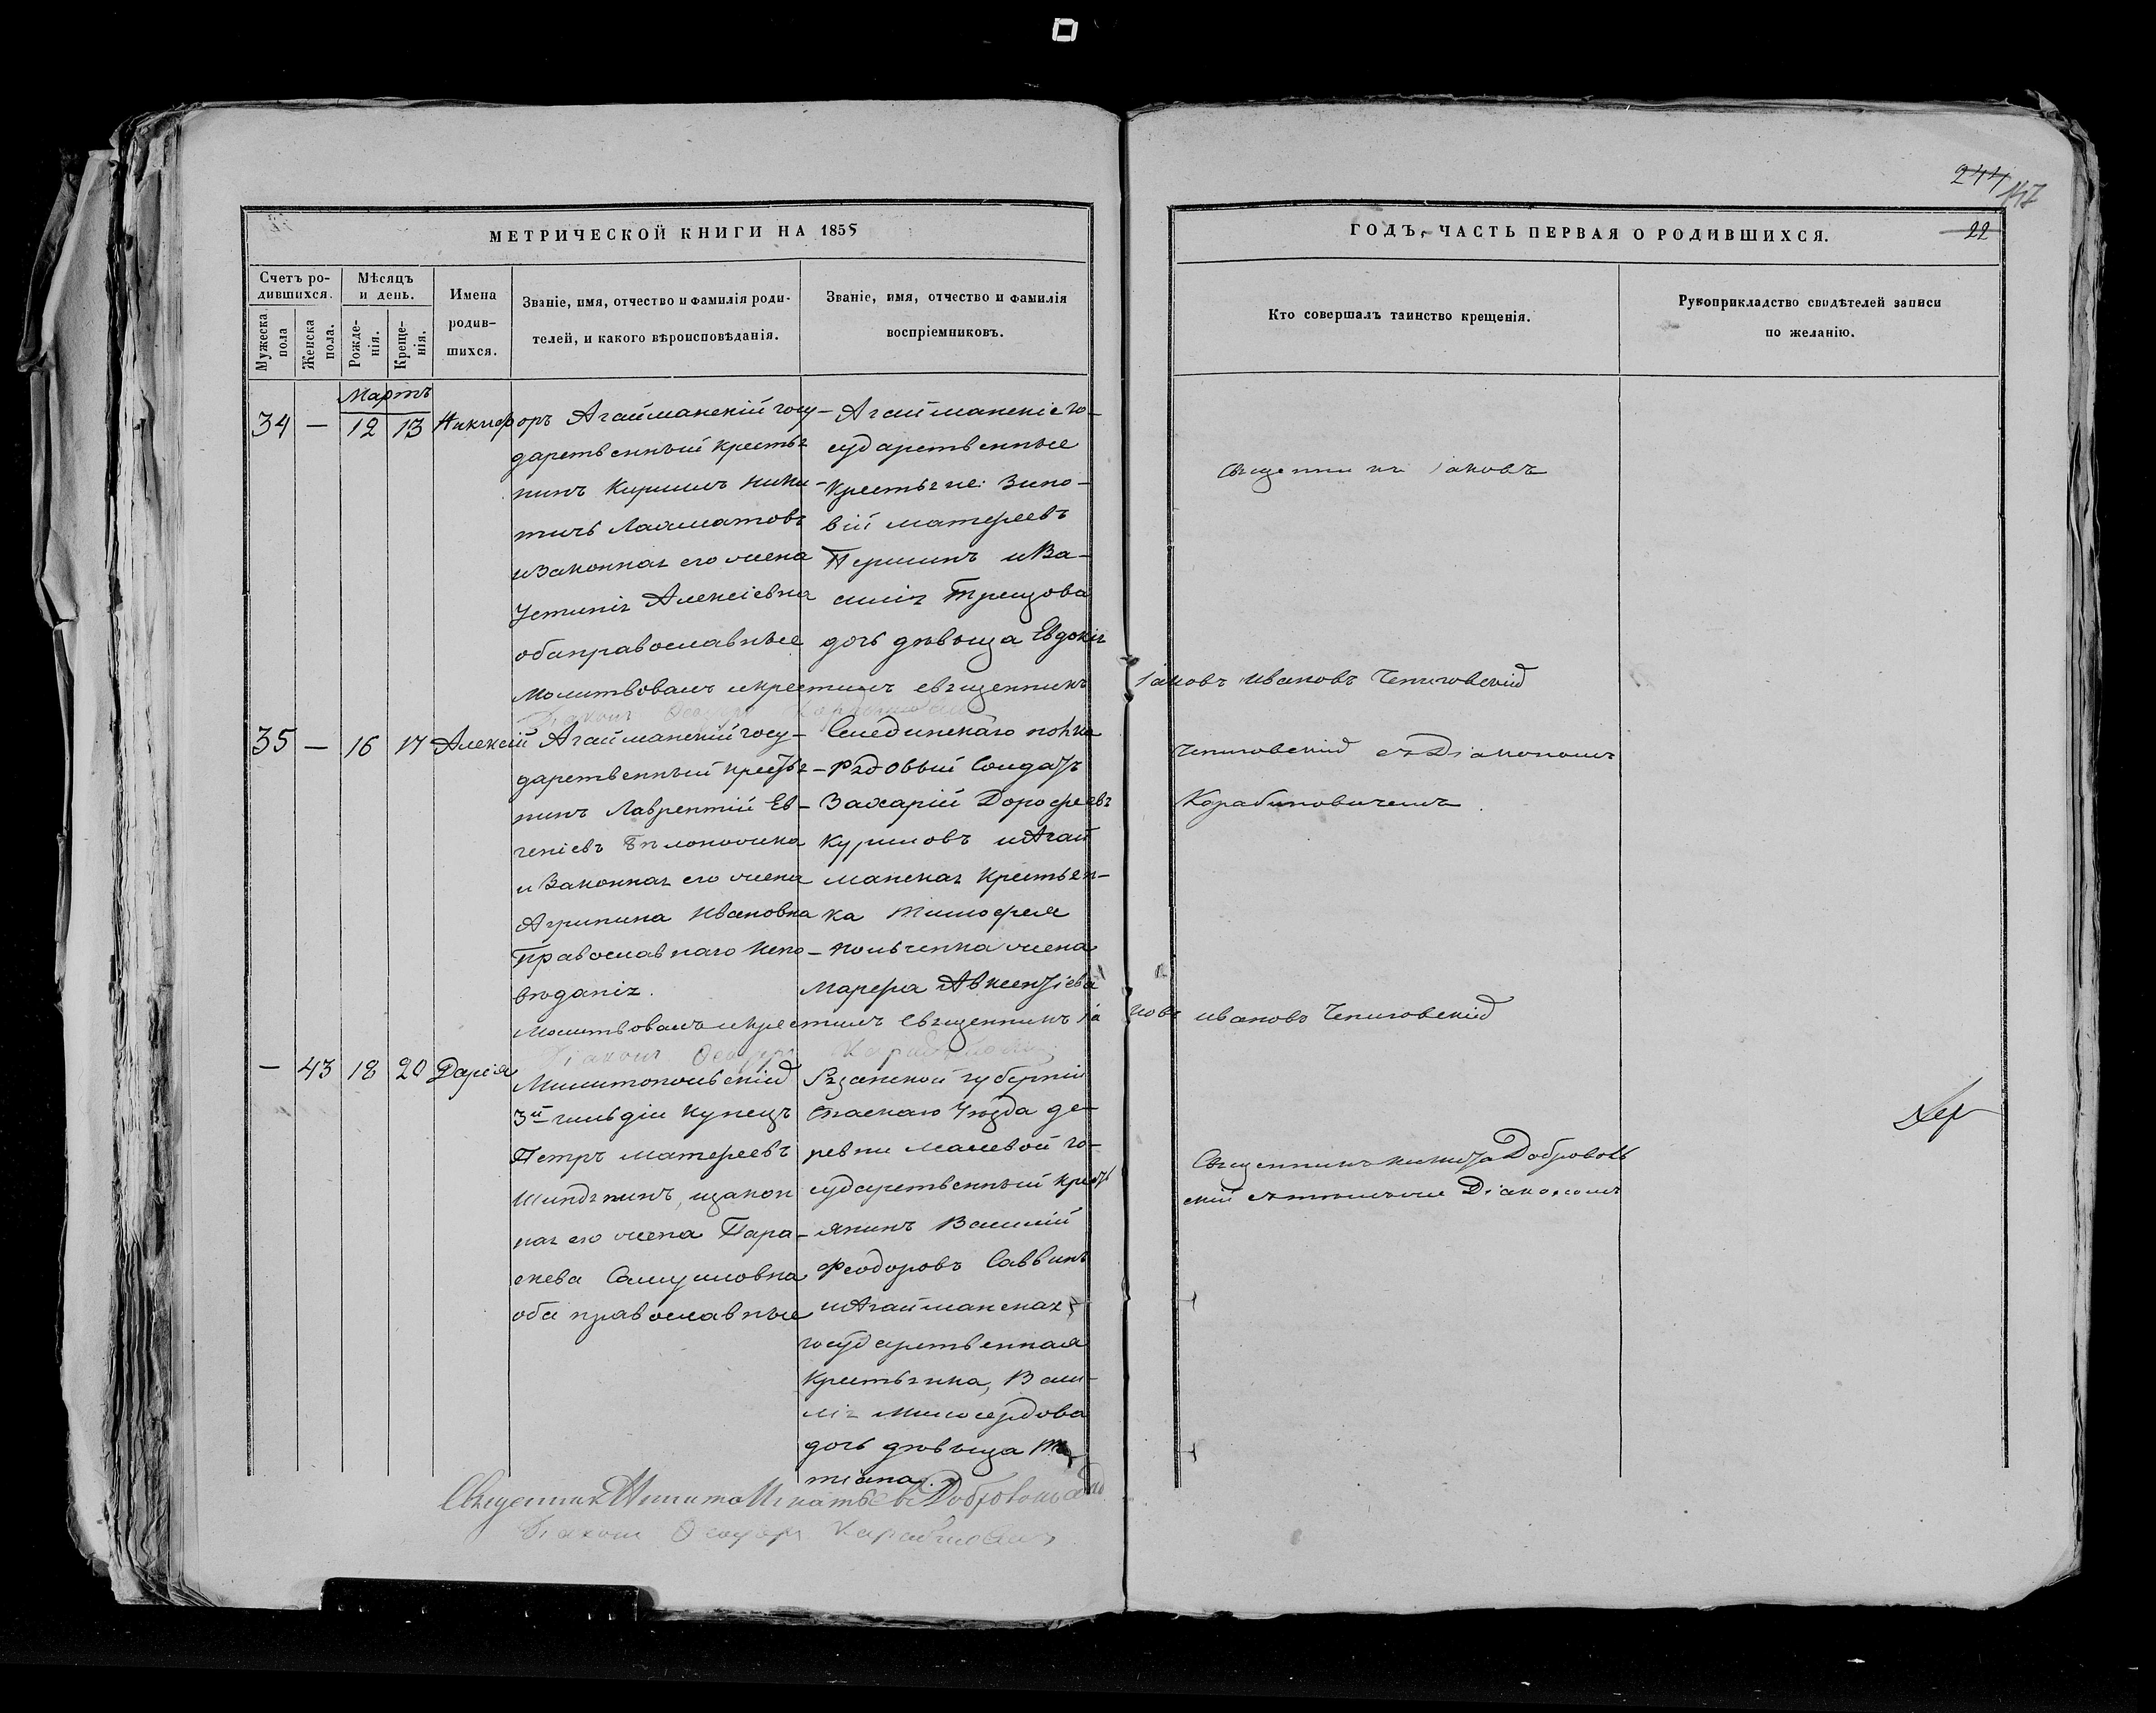 244
147
МЕТРИЧЕСКОЙ КНИГИ НА 1855
ГОДЪ, ЧАСТЬ ПЕРВАЯ О РОДИВШИХСЯ.
22
Счетъ ро-
дившихся.
Мужеска
пола
Женска
пола.
Мѣсяцъ
и день.
Рожде-
нія.
Креще-
нія.
Имена
родив-
шихся.
Званіе, имя, отчество и фамилія роди-
телей, и какого вѣроисповѣданія.
Званіе, имя, отчество и фамилія
воспріемниковъ.
Кто совершалъ таинство крещенія.
Рукоприкладство свидѣтелей записи
по желанію.
Мартъ
34 — 12 13 Никифоръ
Агайманскій госу-
дарственный крестья
нинъ Кирилъ Ники-
тичъ Лахматовъ
и законная его жена
Устинія Алексіевна
оба православные
Агайманскіе го-
сударственные
крестьяне: Зино-
вій Матфеевъ
Першинъ и Ва-
силія Трещова
дочь дѣвица Евдокія
Священникъ Іаковъ
Молитвовалъ и крестилъ священникъ Іаковъ Ивановъ Чепиговскій
Діаконъ
35 — 16 17 Алексій
Агайманскій госу-
дарственный кресть-
нинъ Лаврентій Ев-
геніевъ
и законная его жена
Агрипина Ивановна
Православнаго испо-
вѣданія.
полка
Рядовый Солдатъ
Захарій Дорофеевъ
Куриловъ и Агай
манская крестьян-
ка Тимофея
жена
Марфа Авксентіева
Чепиговскій съ Діакономъ
Карабиновичемъ
Молитвовалъ и крестилъ священникъ Іаковъ Ивановъ Чепиговскій
Діаконъ
— 43 18 20 Дарія
Милитопольскій
3й гильдіи купецъ
Петръ Матфеевъ
Шиндянинъ, и закон
ная его жена Пара-
скева Самуиловна
оба православные
Рязанской губерніи
Спаскаго Уѣзда де-
ревни Малевой го-
сударственный крест
янинъ Василій
Феодоровъ Саввинъ
и Агайманская
государственная
крестьянка, Васи-
лія Милосердова
дочь дѣвица Та
тіана.
Священникъ Никита Добровольскій съ тѣмъ же Діакономъ
Священникъ Никита Игнатьевъ Добровольскій
Діаконъ